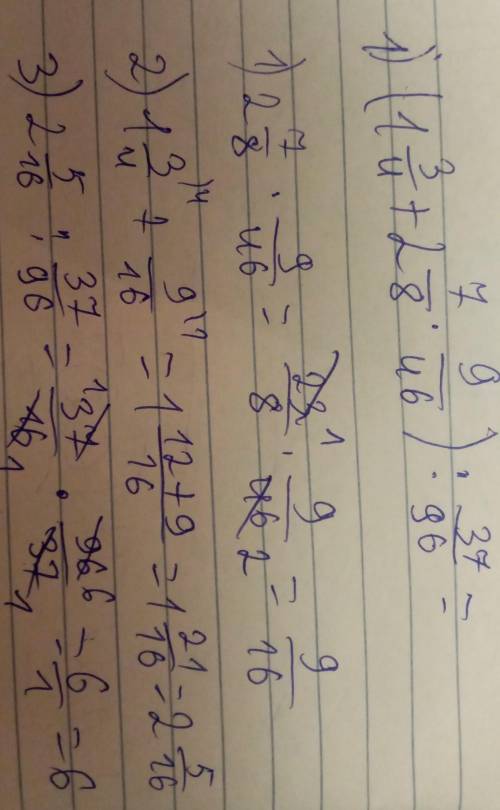 1) (1 3/4 + 2 7/8 · 9/46) : 37/96 =
1) 2 7/8 · 9/46 = 23 1/8 · 9/46 2 = 9/16
2) 1 3/4 \4 + 9/16 \1 = 1 12+9/16 = 1 21/16 = 2 5/16
3) 2 5/16 : 37/96 = 1 37/16 1 · 96 6/37 1 = 6/1 = 6